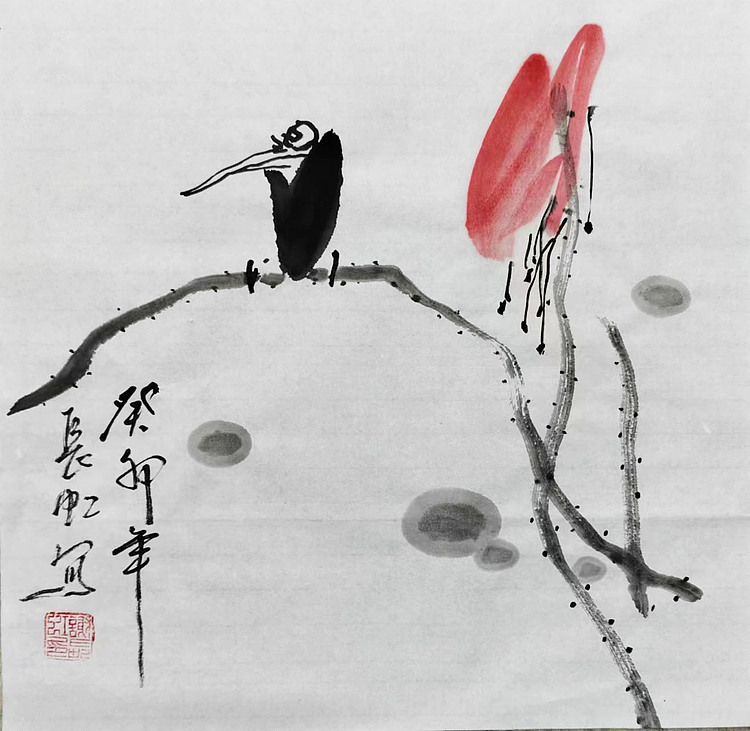 癸卯年
長虹写